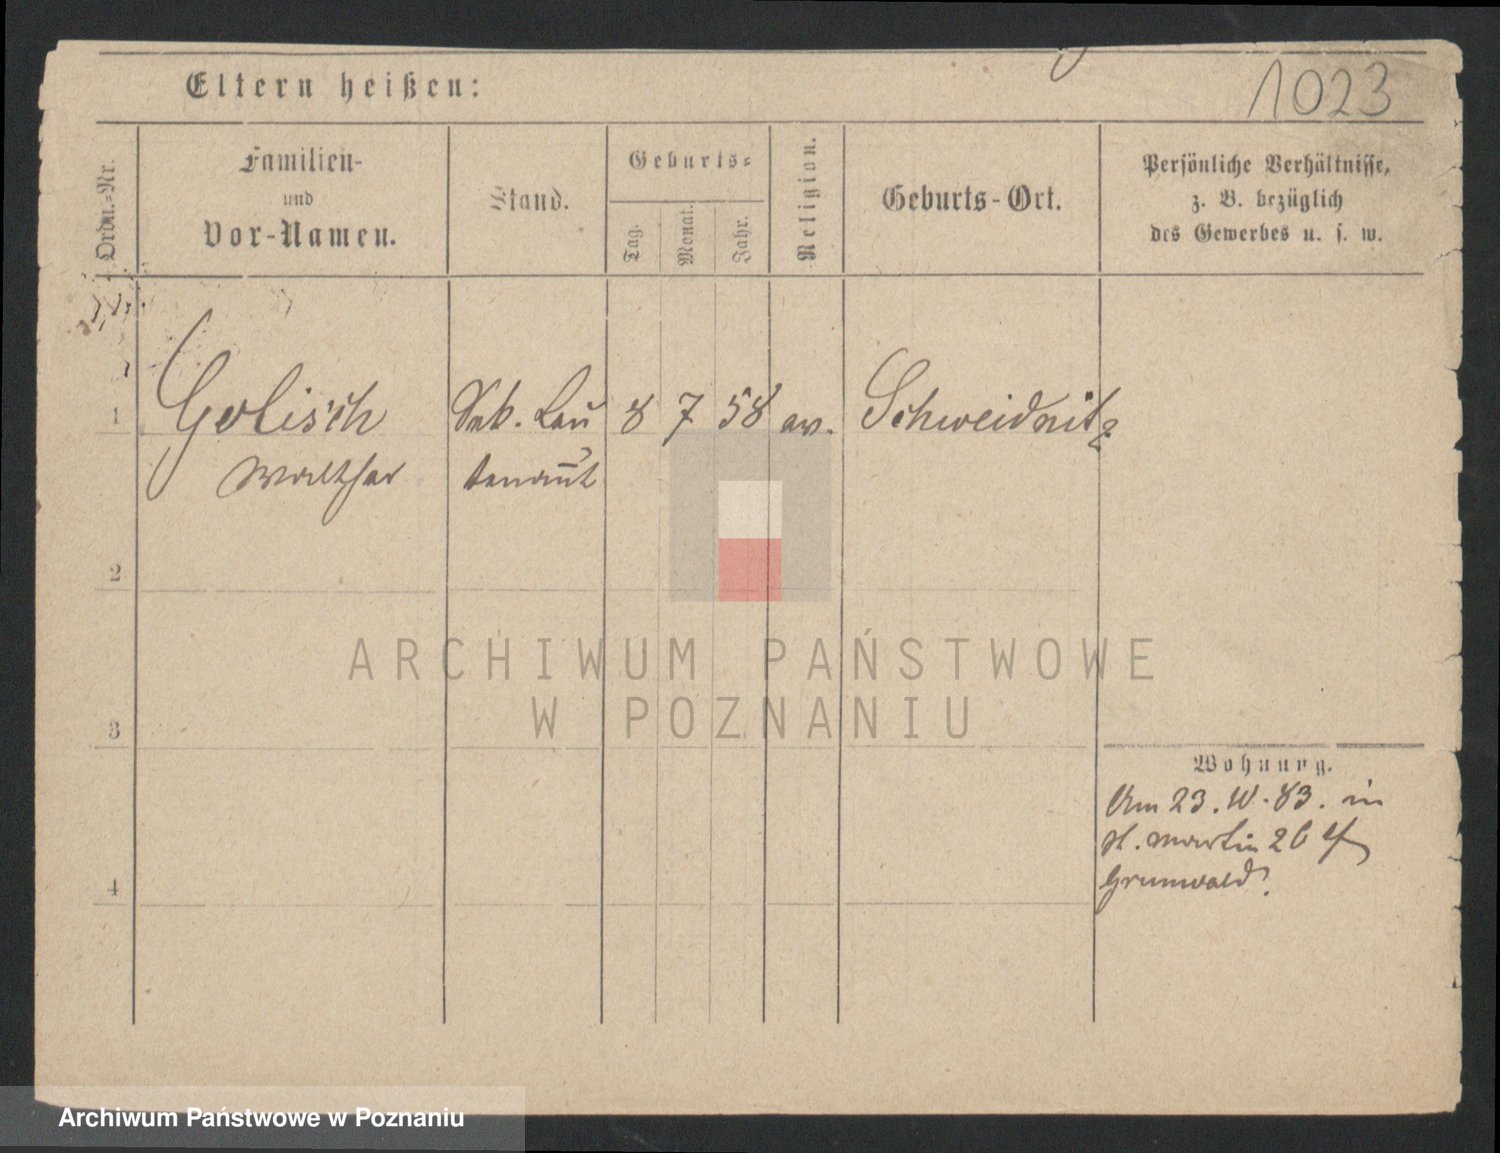 1023
Eltern heißen:
Ordn.-Nr.
Familien-
und
Vor-Namen.
Stand.
Geburts-
Tag.
Monat.
Jahr.
Religion.
Geburts-Ort.
Persönliche Verhältnisse,
z. B. bezüglich
des Gewerbes u. s. w.
1
Golisch
Walther
Sek. Leu
tenant
8
7
58
ev.
Schweidnitz
2
3
4
Wohnung.
Am 23. IV. 83. in
St. Martin 26
Grunwald.
ARCHIWUM PAŃSTWOWE
W POZNANIU
Archiwum Państwowe w Poznaniu